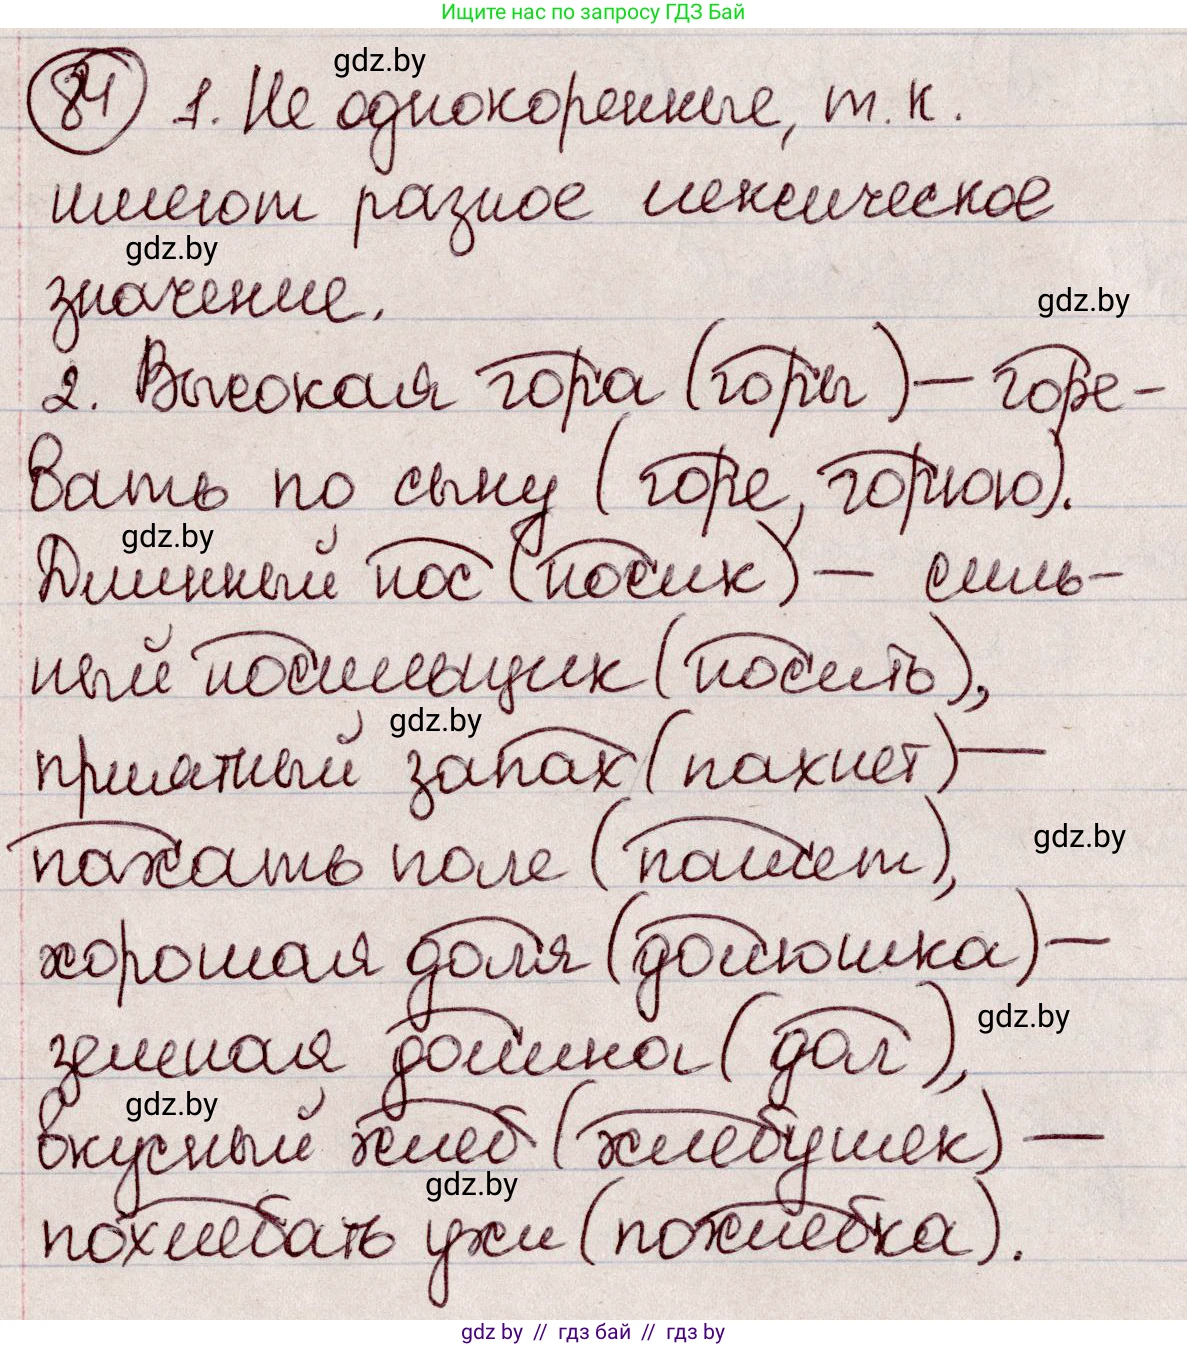 Ищите нас по запросу ГДЗ Бай
gdz.by
84 1. Не однокоренные, т. к.
имеют разное лексическое
gdz.by
значение.
gdz.by
2. Высокая гора (горы) – горе-
вать по сыну (горе, горюю).
gdz.by
Длинный нос (носик) – силь-
ный носильщик (носить),
gdz.by
приятный запах (пахнет) –
пахать поле (пашет),
gdz.by
хорошая доля (долюшка) –
земная долина (дол),
gdz.by
gdz.by
вкусный хлеб (хлебушек) –
gdz.by
похлебать ухи (похлебка).
gdz by // гдз бай // гдз by